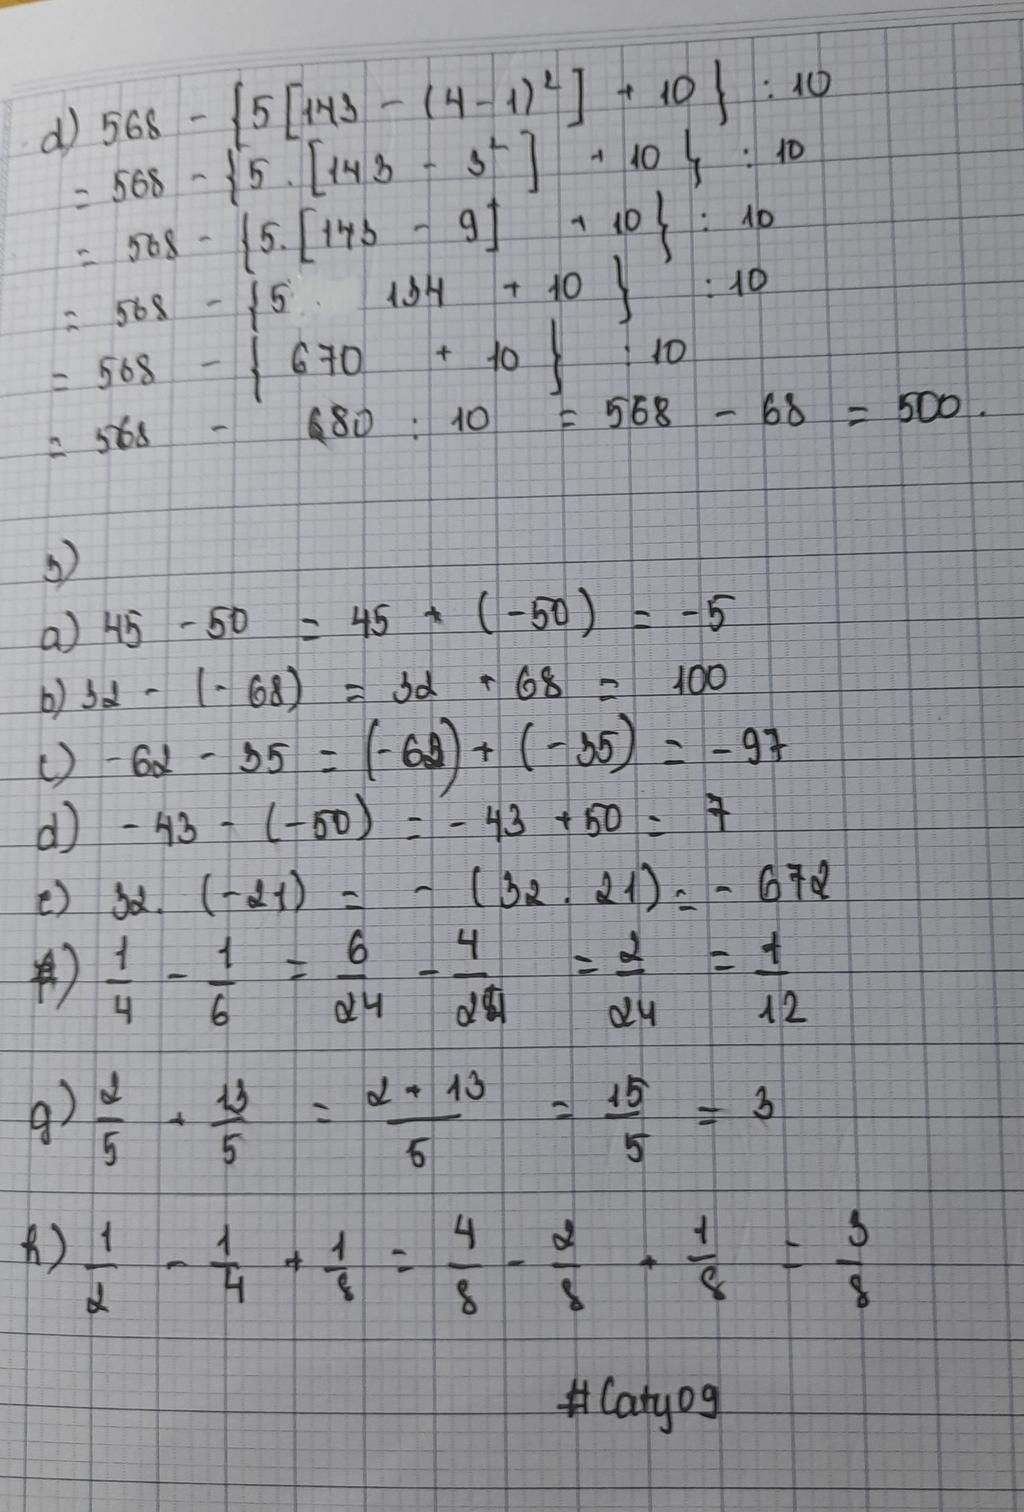 d) 568 - {5[143 - (4-1)²] + 10} : 10
= 568 - {5 . [143 - 3²] + 10} : 10
= 568 - {5. [143 - 9] + 10} : 10
= 568 - {5 . 134 + 10} : 10
= 568 - {670 + 10} : 10
= 568 - 680 : 10 = 568 - 68 = 500.
3)
a) 45 - 50 = 45 + (-50) = -5
b) 32 - (-68) = 32 + 68 = 100
c) -62 - 35 = (-62) + (-35) = -97
d) -43 - (-50) = -43 + 50 = 7
e) 32. (-21) = - (32 . 21) = - 672
f) 1/4 - 1/6 = 6/24 - 4/24 = 2/24 = 1/12
g) 2/5 + 13/5 = 2 + 13/5 = 15/5 = 3
h) 1/2 - 1/4 + 1/8 = 4/8 - 2/8 + 1/8 = 3/8
#Caty09